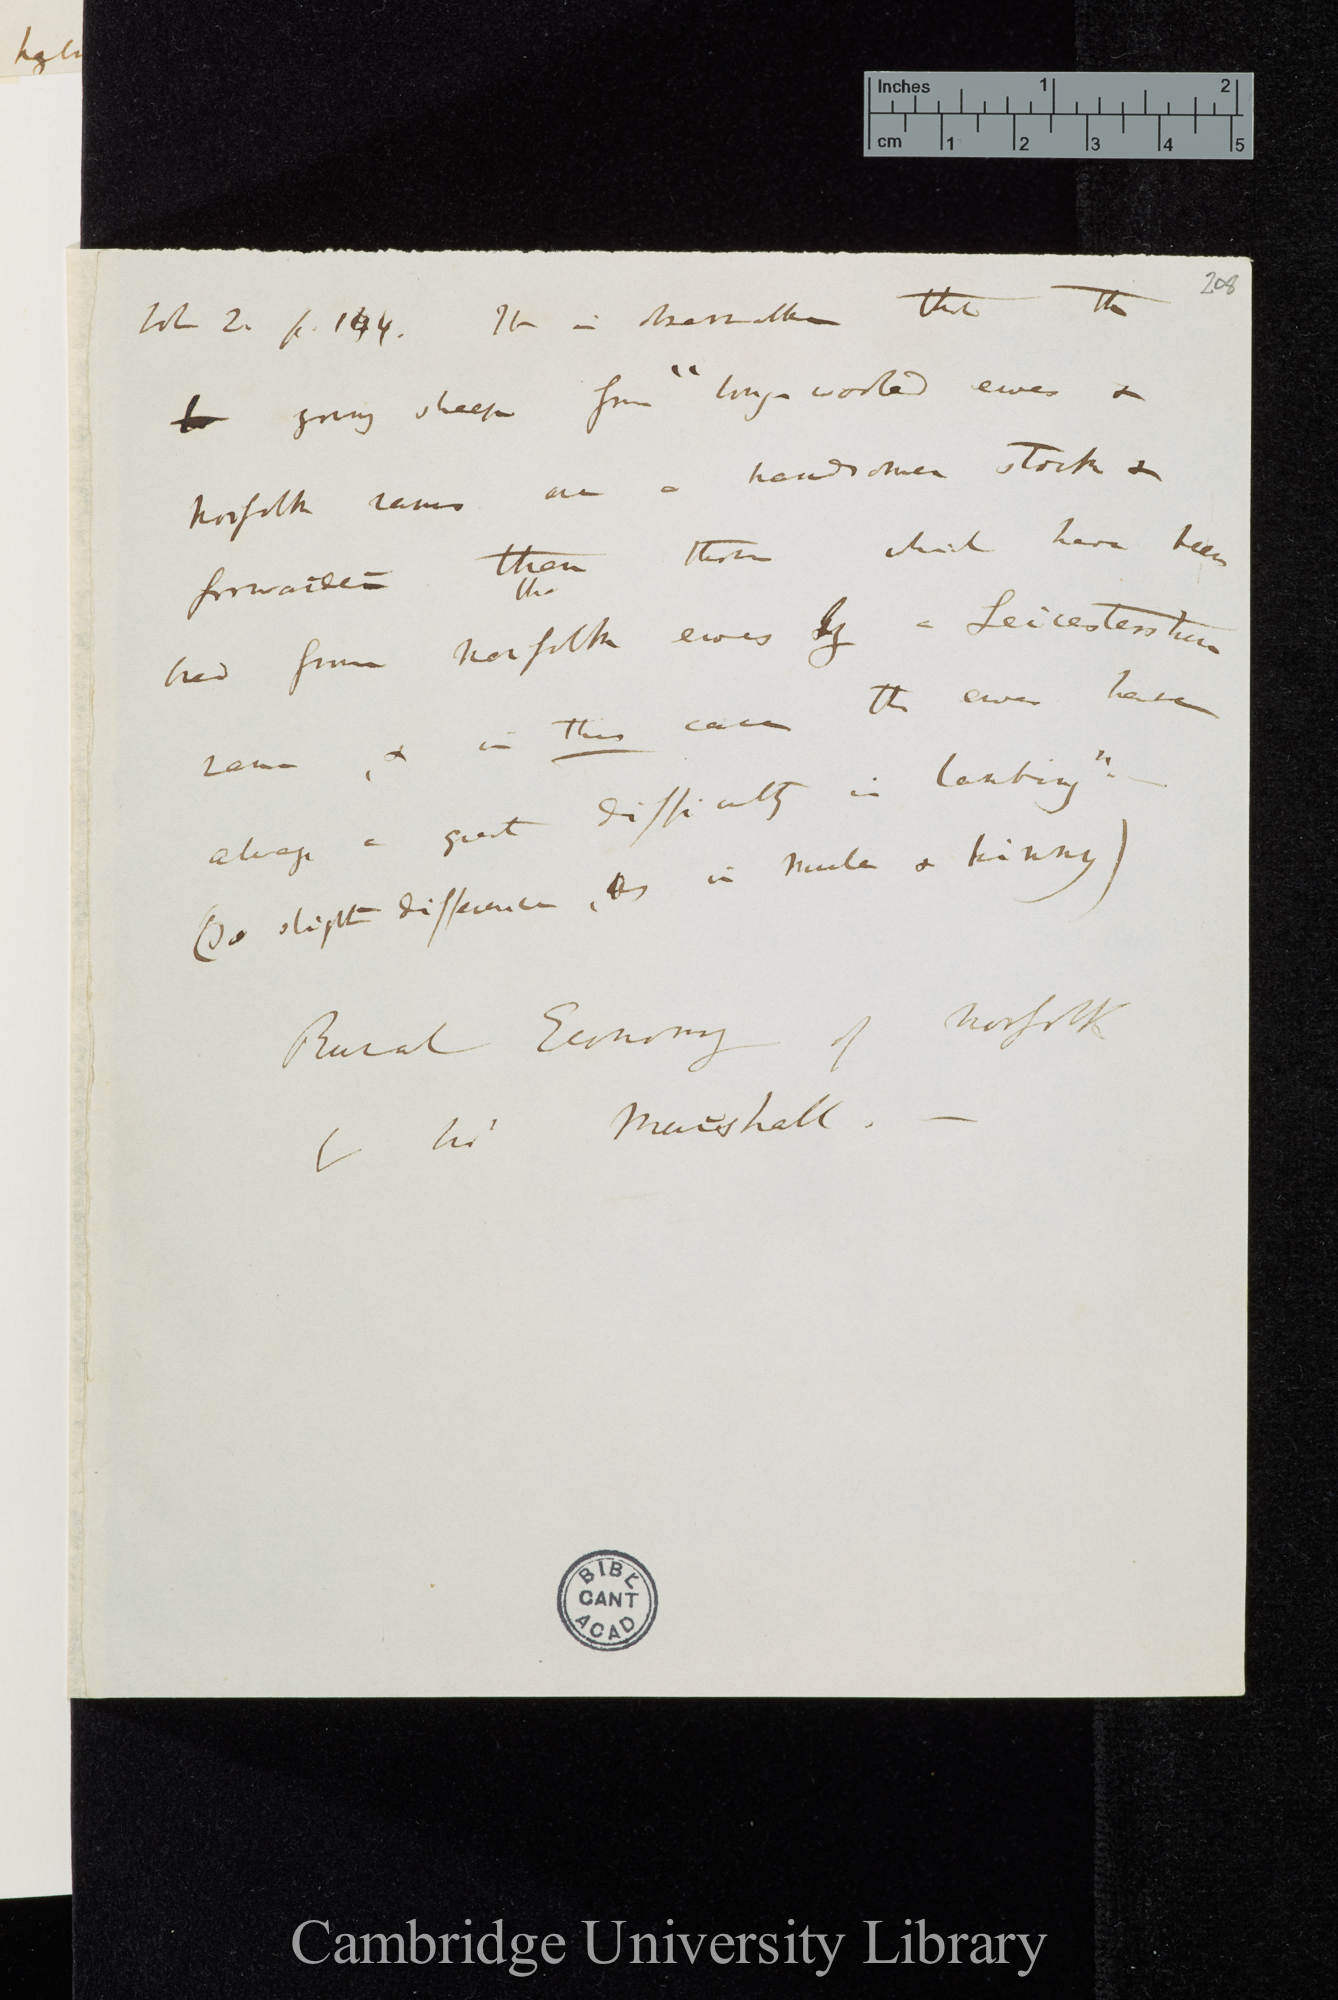 Inches 1 2
cm 1 2 3 4 5
208
Vol 2. p. 144. It is observable that the
young sheep from "long-woolled ewes &
Norfolk rams are a handsomer stock &
forwarder than those which have been
the
bred from Norfolk ewes by a Leicestershire
ram, & in this case the ewes have
always a great difficulty in lambing". —
(So slight difference, as in mule & hinny)
Rural Economy of Norfolk
by Mr Marshall. —
BIBL
CANT
ACAD
Cambridge University Library